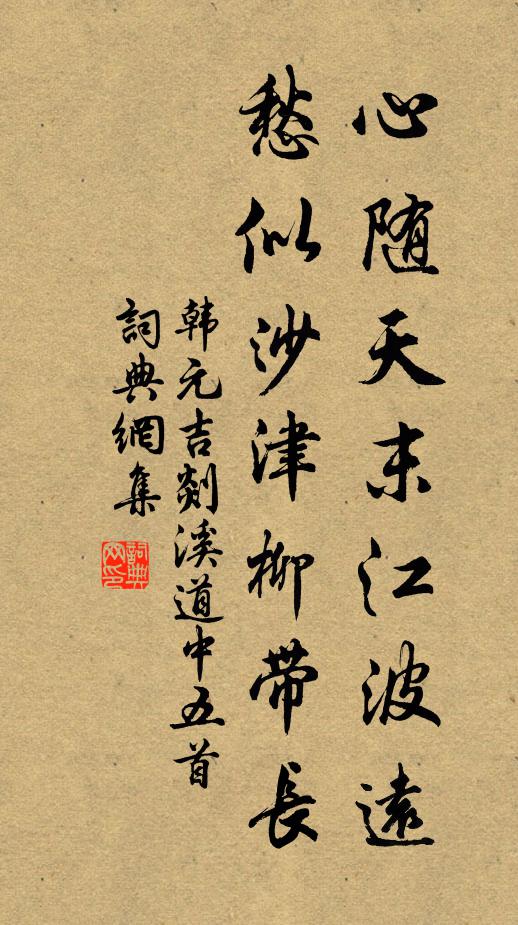 心随天末江波遠
愁似沙津柳帶長
韩元吉剡溪道中五首
詞典網集
詞典
网印